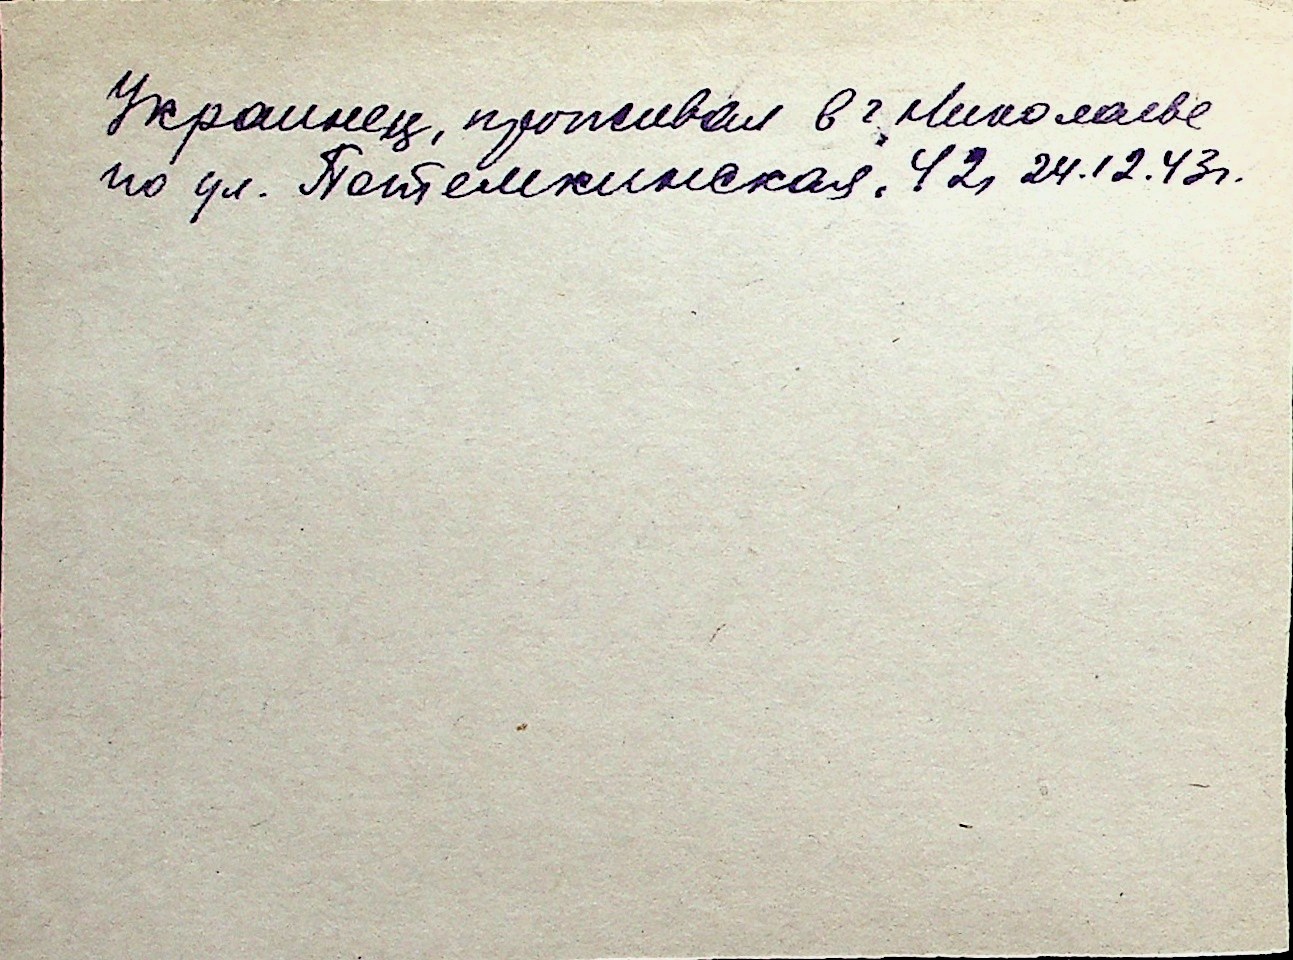 Украинец, проживал в г. Николаеве
по ул. Потемкинская, 42, 24.12.43г.